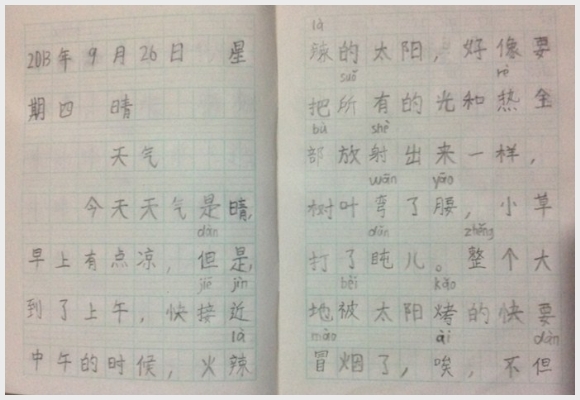 2013年9月26日 星
期四 晴
天气
今天天气是晴,
dàn
早上有点凉，但是,
jiē jìn
到了上午，快接近
là
中午的时候，火辣
là
辣的太阳，好像要
suǒ rè
把所有的光和热全
bù shè
部放射出来一样，
wān yāo
树叶弯了腰，小草
dǔn zhěng
打了盹儿。整个大
bèi kǎo
地被太阳烤的快要
mào āi dàn
冒烟了，唉，不但